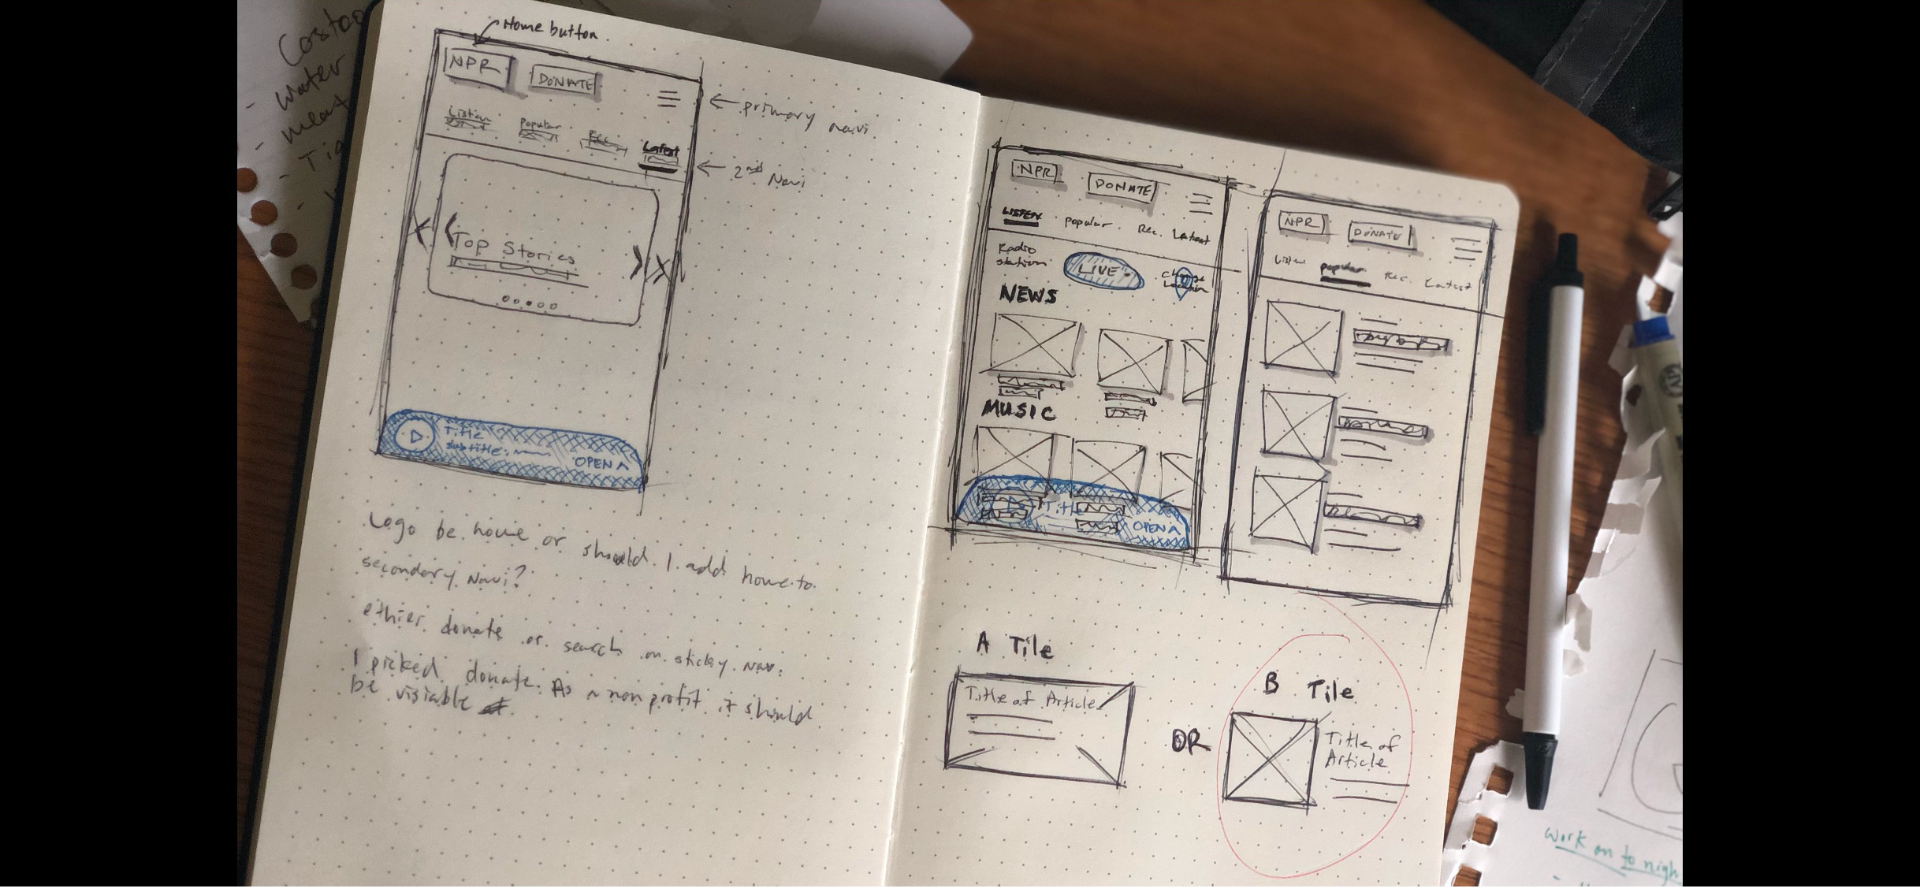 Costco
- water
- meat
Home button
NPR
DONATE
← primary navi
Listen
Popular
Rec.
Latest
← 2nd Navi
Top Stories
Title
subtitle
OPEN ^
Logo be home or should I add home to
secondary Navi?
ethier donate or search on sticky nav.
I picked donate. As a non profit it should
be visiable
NPR
DONATE
LISTEN
popular
Rec.
Latest
Radio
station
LIVE
change
location
NEWS
MUSIC
Title
OPEN ^
NPR
DONATE
Listen
popular
Rec.
Latest
A Tile
Title of Article
OR
B Tile
Title of
Article
Work on to nigh